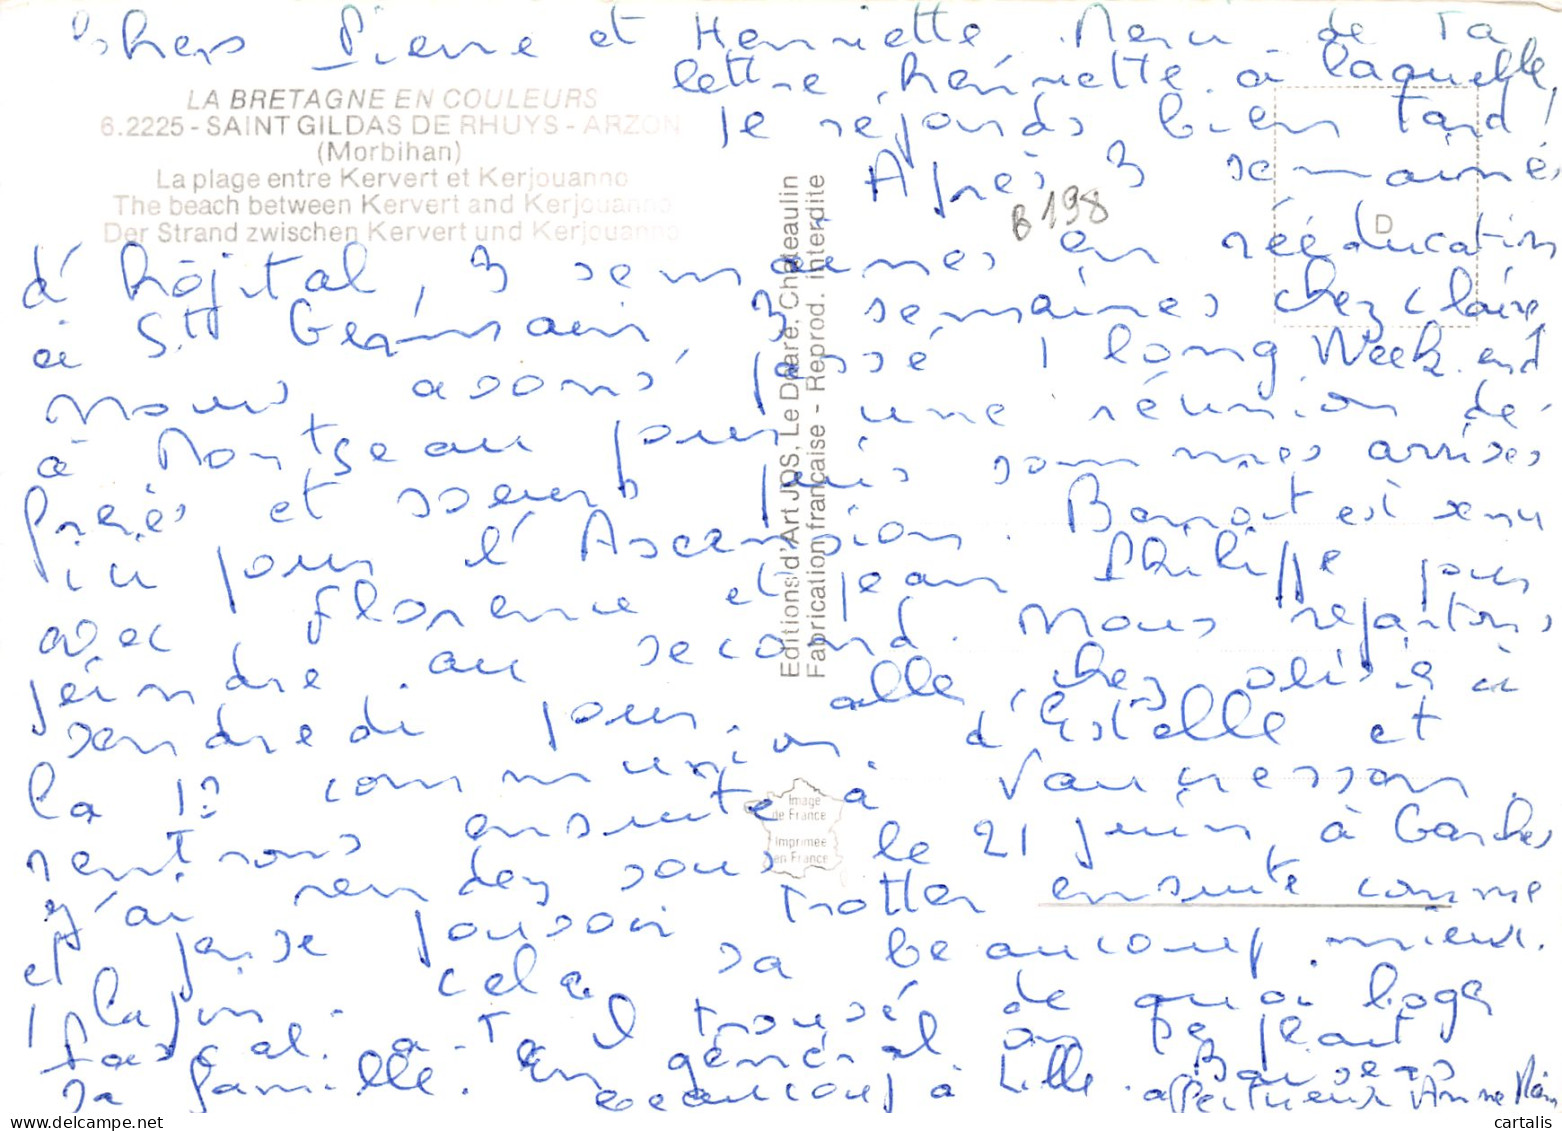 Chers Pierre et Henriette. Merci de ta
lettre, henriette. à laquelle,
je réponds bien tard!
LA BRETAGNE EN COULEURS
6.2225 - SAINT GILDAS DE RHUYS - ARZON
(Morbihan)
La plage entre Kervert et Kerjouanno
The beach between Kervert and Kerjouanno
Der Strand zwischen Kervert und Kerjouanno
Après 3 semaines
d'hôpital, 3 semaines en rééducation
à St Germain, 3 semaines chez Claire,
nous avons passé 1 long Week-end
à Montgeau pour une réunion de
frères et soeurs puis sommes arrivés
ici pour l'Ascension. Benoit est venu
avec Florence et Jean Philippe pour
joindre au second. Nous repartons
vendredi pour aller chez à
la 1è communion d'Estelle et
rentrons ensuite à Vaucresson.
J'ai rendez vous le 21 juin, à Garches
et pense pouvoir trotter ensuite comme
1 lapin. cela va beaucoup mieux.
Pascal a-t-il trouvé de quoi loger
sa famille. En général on se plait
beaucoup à Lille. Baisers
affectueux Anne Marie
B198
D
Editions d'Art JOS, Le Doaré, Châteaulin
Fabrication française - Reprod. interdite
Image
de France
Imprimée
en France
cartalis